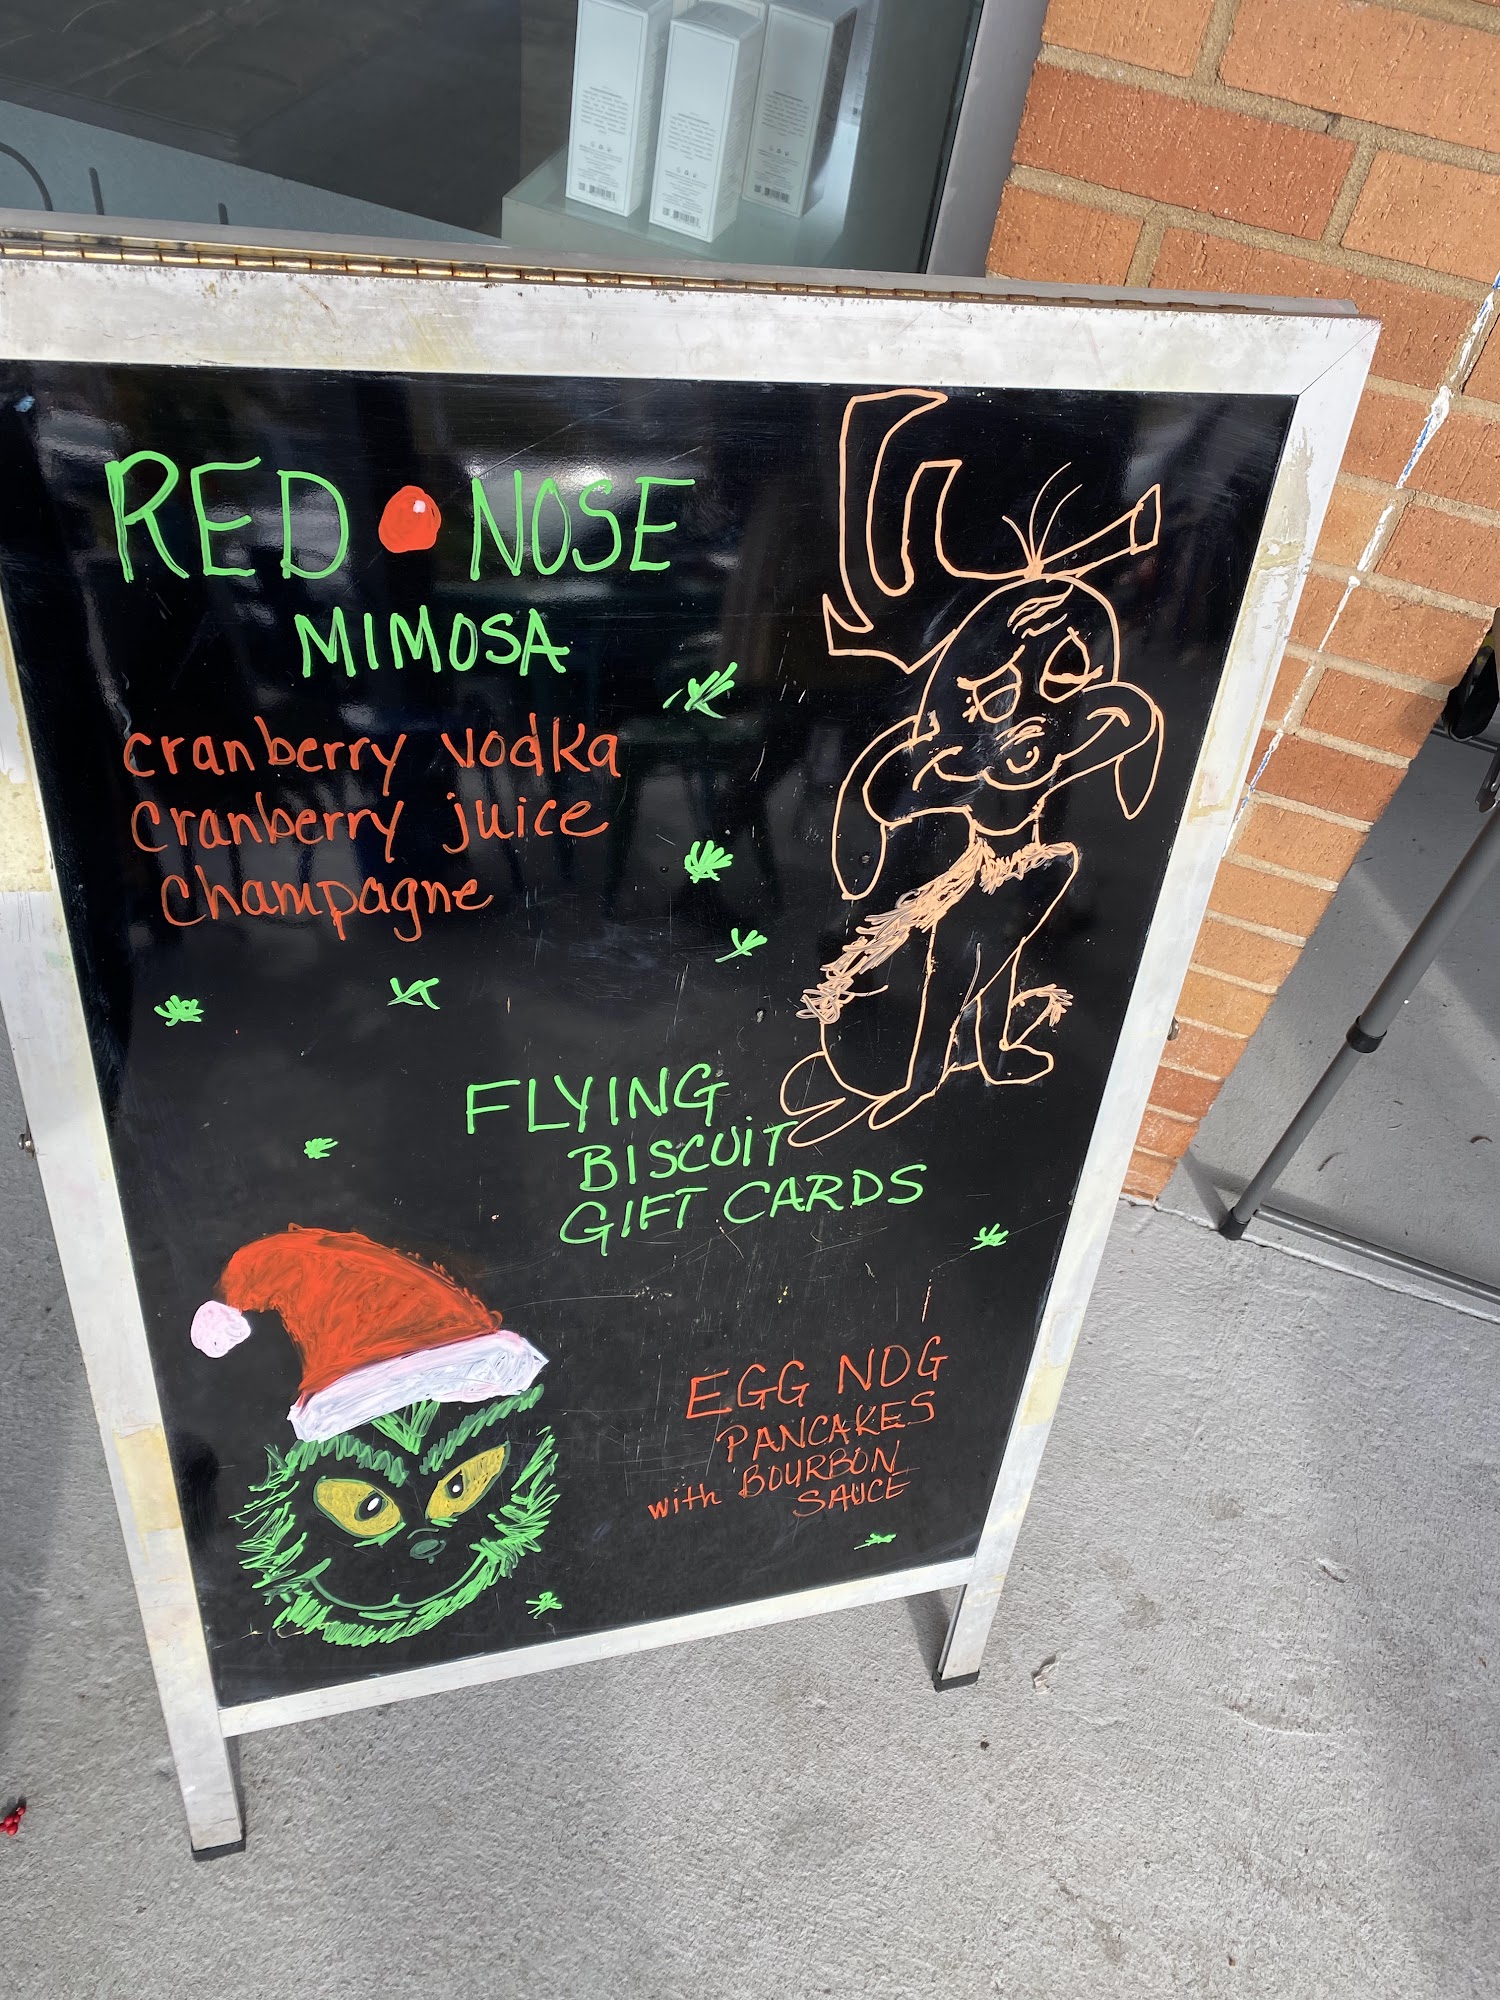 RED NOSE
MIMOSA
cranberry vodka
cranberry juice
champagne
FLYING
BISCUIT
GIFT CARDS
EGG NOG
PANCAKES
with BOURBON
SAUCE